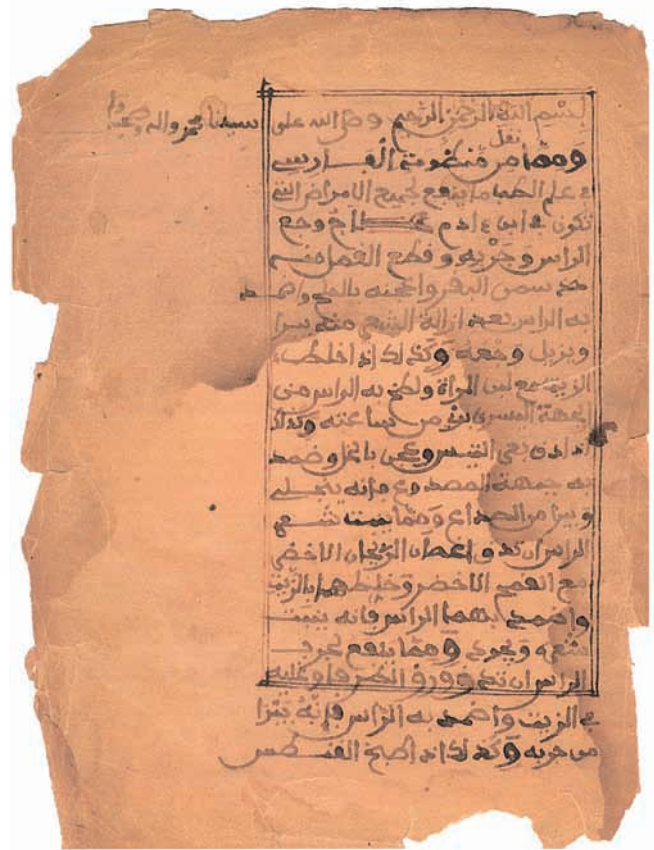 بسم الله الرحمن الرحيم وصلى الله على سيدنا محمد وآله وصحبه
نقل
ومما من منظومة الفارس
في علم الطب ما ينفع لجميع الامراض التي
تكون في ابن ءادم وجع
الراس وحربه وقطع القمل منه
خذ سمن البقر واعجنه بالملح واضمد
به الراس بعد ازالة الشعر منه يبرا
ويزيل وجعه وكذلك اذا اخلط
الزيت مع لبن المراة ولطخ به الراس من
الجهة اليسرى برئ من ساعته وكذلك
اذا دق وعجن بالخل وضمد
به جبهة المصدوع فإنه
ويبرا من الصداع ومما ينبت شعر
الراس ان تدق اغصان الريحان الاخضر
مع الاخضر وخلطهما بالزيت
واضمد بهما الراس فانه ينبت
شعره ويجود ومما ينفع
الراس ان تدق ورق وغليه
في الزيت واضمد به الراس فإنه يبرا
من حربه وكذلك اذا طبخ